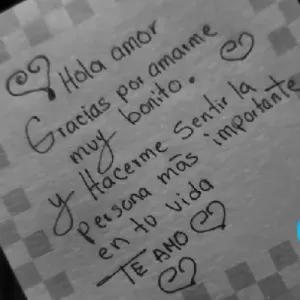 Hola amor
Gracias por amarme
muy bonito.
y Hacerme Sentir la
persona más importante
en tu vida
TE AMO